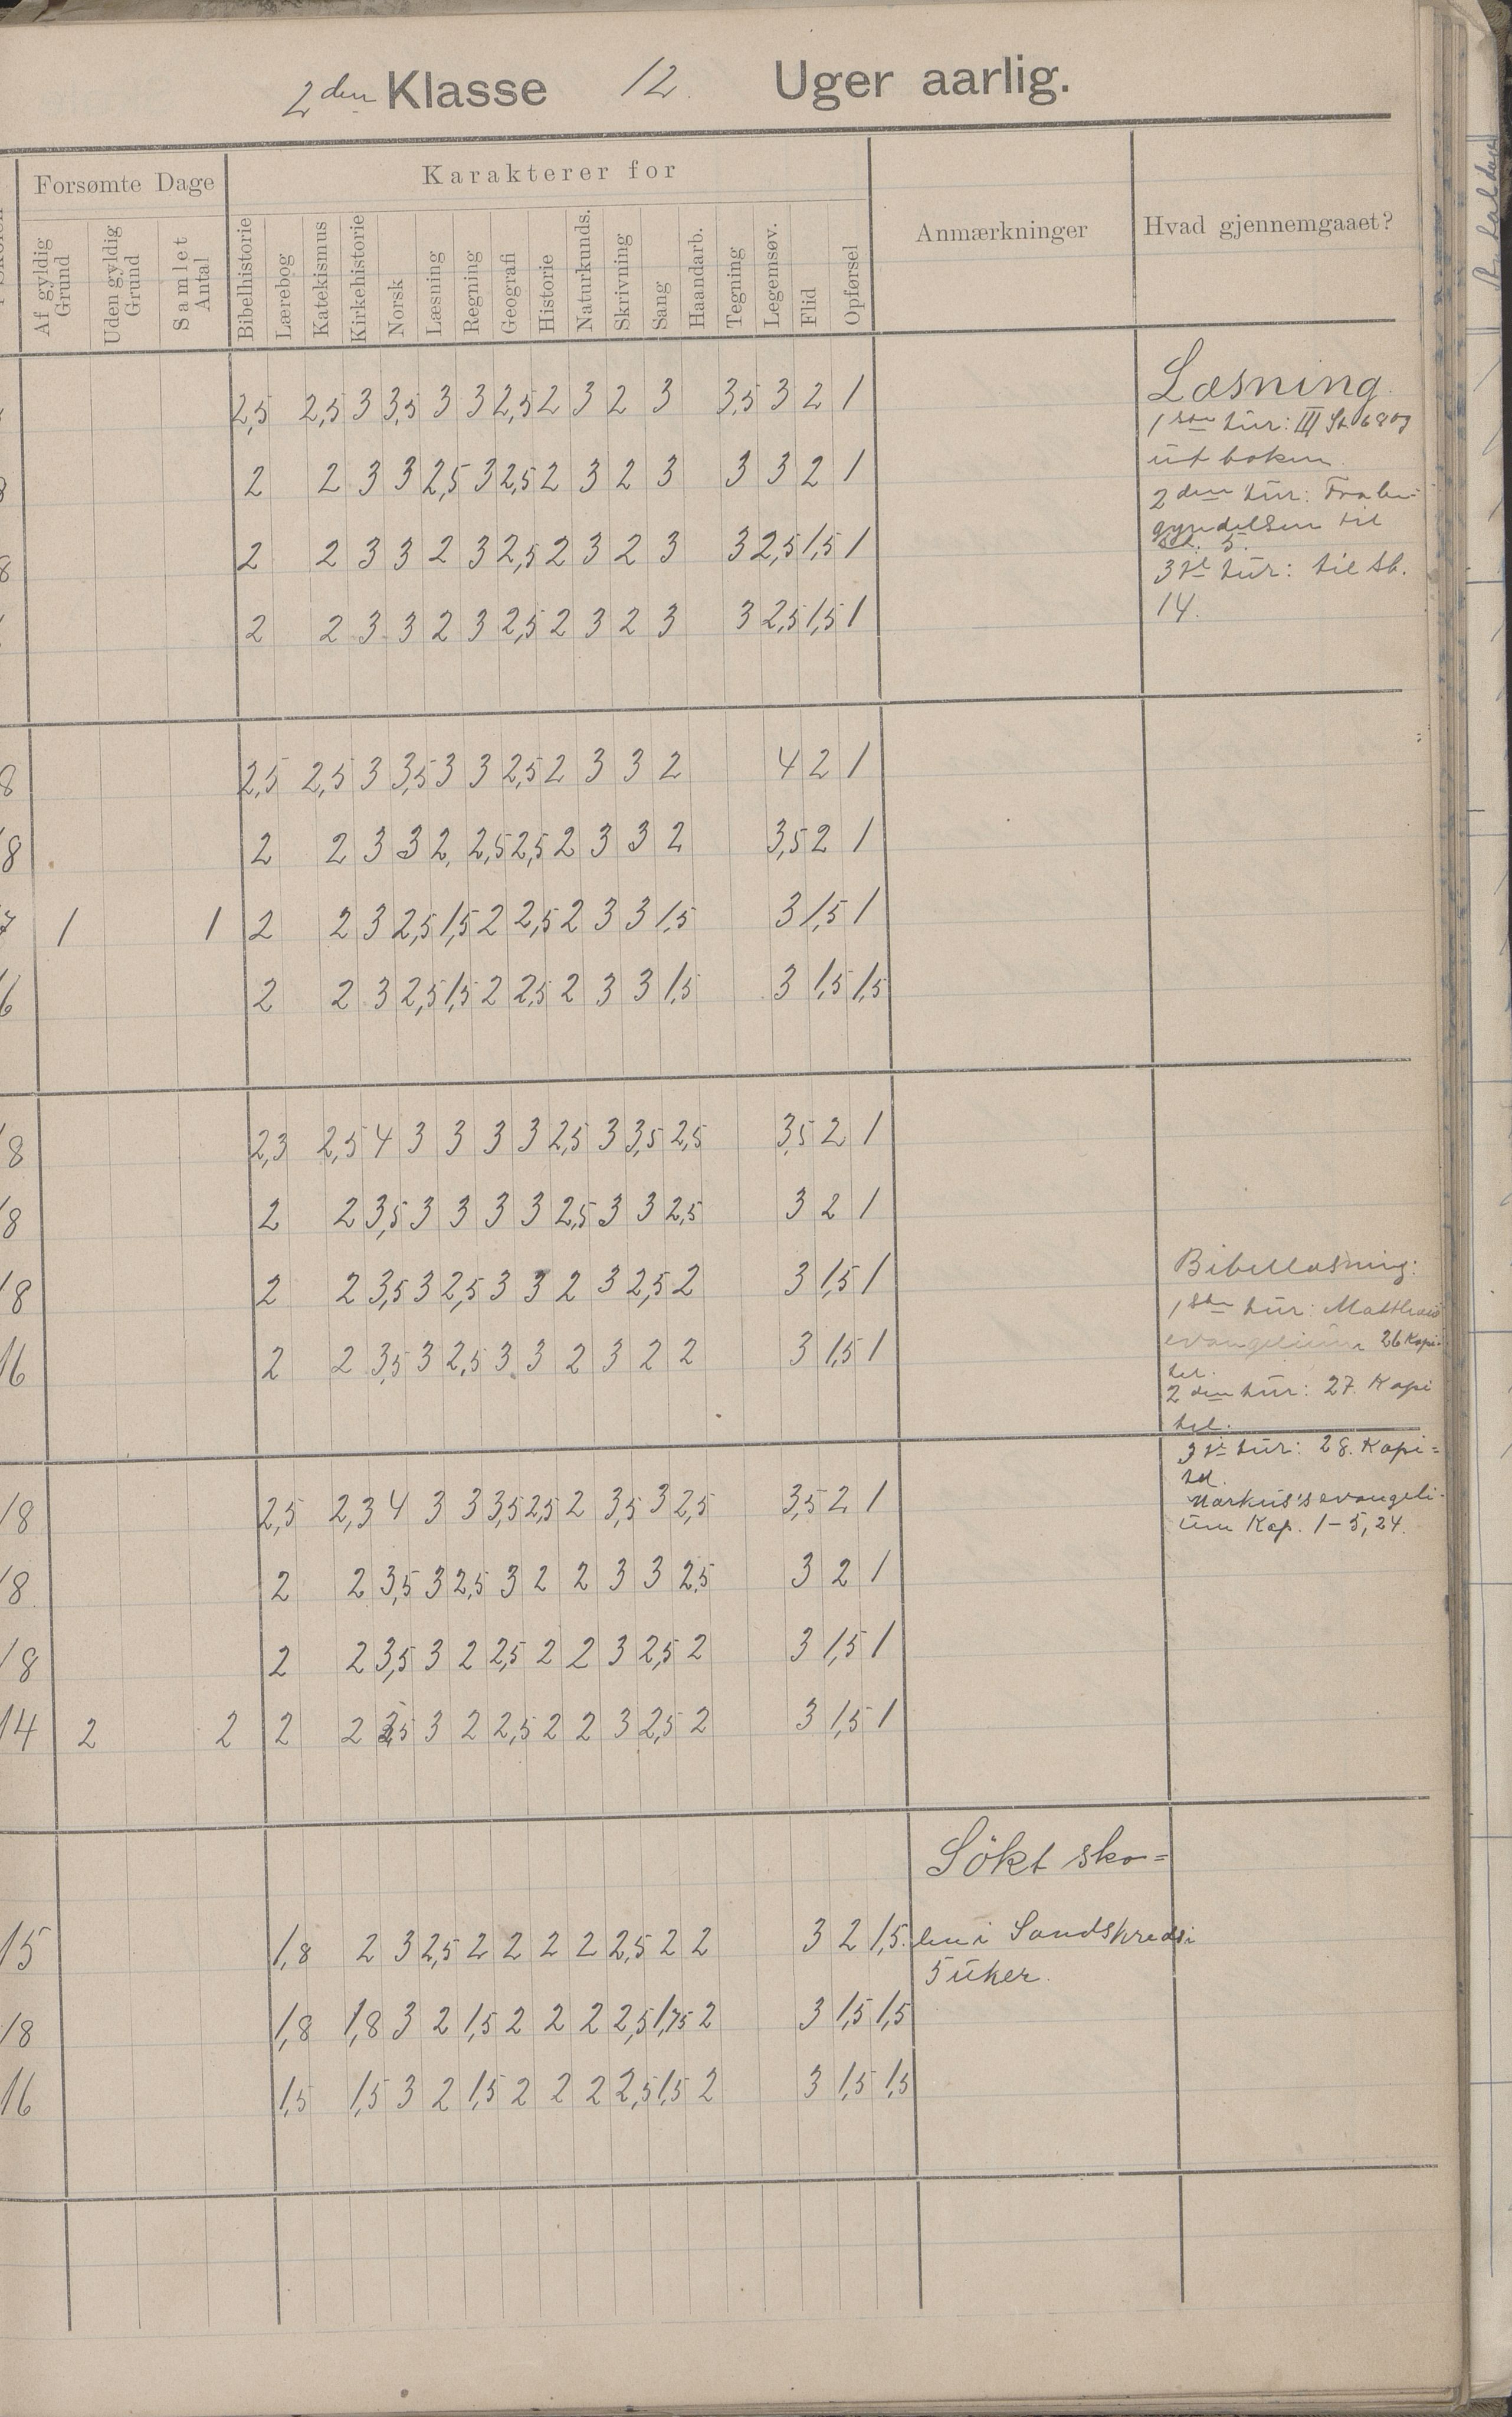 2den Klasse 12. Uger aarlig.
Forsømte Dage
Karakterer for
Anmærkninger
Hvad gjennemgaaet?
Af gyldig Grund
Uden gyldig Grund
Samlet Antal
Bibelhistorie
Lærebog
Katekismus
Kirkehistorie
Norsk
Læsning
Regning
Geografi
Historie
Naturkunds.
Skrivning
Sang
Haandarb.
Tegning
Legemsøv.
Flid
Opførsel
2,5 2,5 3 3,5 3 3 2,5 2 3 2 3 3,5 3 2 1
2 2 3 3 2,5 3 2,5 2 3 2 3 3 3 2 1
8 2 2 3 3 2 3 2,5 2 3 2 3 3 2,5 1,5 1
2 2 3 3 2 3 2,5 2 3 2 3 3 2,5 1,5 1
Læsning
1ste tur: III St. 68 og
ut boken.
2den tur: Fra be=
gyndelsen til
St. 5.
3die tur: til st.
14.
8 2,5 2,5 3 3,5 3 3 2,5 2 3 3 2 4 2 1
18 2 2 3 3 2, 2,5 2,5 2 3 3 2 3,5 2 1
7 1 1 2 2 3 2,5 1,5 2 2,5 2 3 3 1,5 3 1,5 1
6 2 2 3 2,5 1,5 2 2,5 2 3 3 1,5 3 1,5 1,5
18 2,3 2,5 4 3 3 3 3 2,5 3 3,5 2,5 3,5 2 1
18 2 2 3,5 3 3 3 3 2,5 3 3 2,5 3 2 1
18 2 2 3,5 3 2,5 3 3 2 3 2,5 2 3 1,5 1
16 2 2 3,5 3 2,5 3 3 2 3 2 2 3 1,5 1
Bibellæsning:
1ste tur: Matthæus
evangelium 26 Kapi=
tel.
2den tur: 27. Kapi
tel.
3die tur: 28. Kapi=
tel.
Markus's evangeli-
um Kap. 1-5,24.
18 2,5 2,3 4 3 3 3,5 2,5 2 3,5 3 2,5 3,5 2 1
18 2 2 3,5 3 2,5 3 2 2 3 3 2,5 3 2 1
18 2 2 3,5 3 2 2,5 2 2 3 2,5 2 3 1,5 1
14 2 2 2 2 3,5 3 2 2,5 2 2 3 2,5 2 3 1,5 1
Sökt sko=
len i Sandskreds i
5 uker.
15 1,8 2 3 2,5 2 2 2 2 2,5 2 2 3 2 1,5
18 1,8 1,8 3 2 1,5 2 2 2 2,5 1,75 2 3 1,5 1,5
16 1,5 1,5 3 2 1,5 2 2 2 2,5 1,5 2 3 1,5 1,5